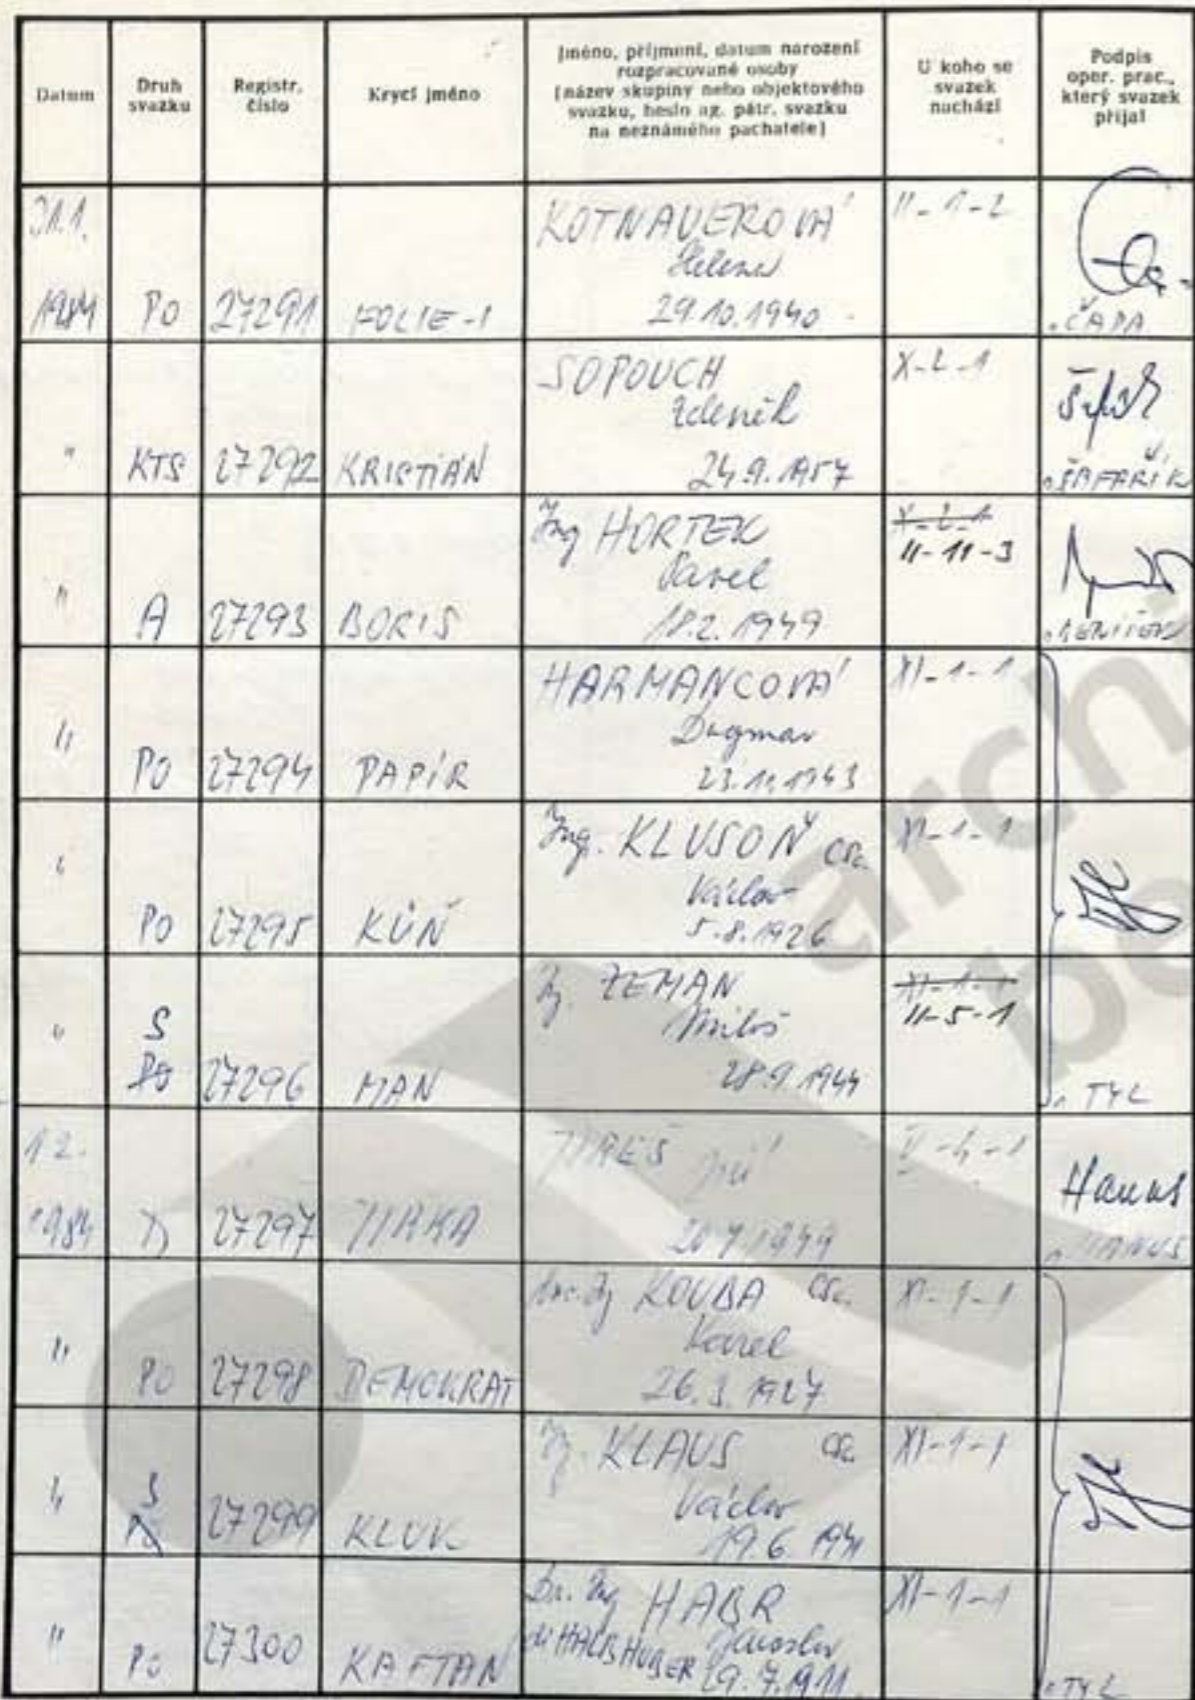 Datum
Druh
svazku
Registr.
číslo
Krycí jméno
Jméno, příjmení, datum narození
rozpracované osoby
(název skupiny nebo objektového
svazku, heslo ag. pátr. svazku
na neznámého pachatele)
U koho se
svazek
nachází
Podpis
oper. prac.,
který svazek
přijal
31.1.
1984
PO
27291
FOLIE-1
KOTNAUEROVÁ
Helena
29.10.1940
II-1-2
ČÁPA
"
KTS
27292
KRISTIÁN
SOPOUCH
Zdeněk
24.9.1957
X-2-1
ŠAFAŘÍK
"
A
27293
BORIS
Ing HORTEK
Pavel
18.2.1949
X-2-1
II-11-3
"
PO
27294
PAPÍR
HARMANCOVÁ
Dagmar
XI-1-1
"
PO
27295
KŮŇ
Ing. KLUSOŇ CSc.
Václav
5.8.1926
XI-1-1
"
S
PO
27296
MAN
Ing. ZEMAN
Miloš
28.9.1944
XI-1-1
II-5-1
TYL
1.2.
1984
D
27297
JIRKA
MAREŠ Jiří
V-4-1
Hanus
HANUS
"
PO
27298
DEMOKRAT
Doc. Ing KOUBA CSc.
Karel
26.3.1927
XI-1-1
"
S
PO
27299
KLUK
Ing. KLAUS CSc
Václav
19.6.1941
XI-1-1
"
PO
27300
KAFTAN
Dr. Ing HABR
Jaroslav
HALBHUBER 29.7.1911
XI-1-1
TYL
arch